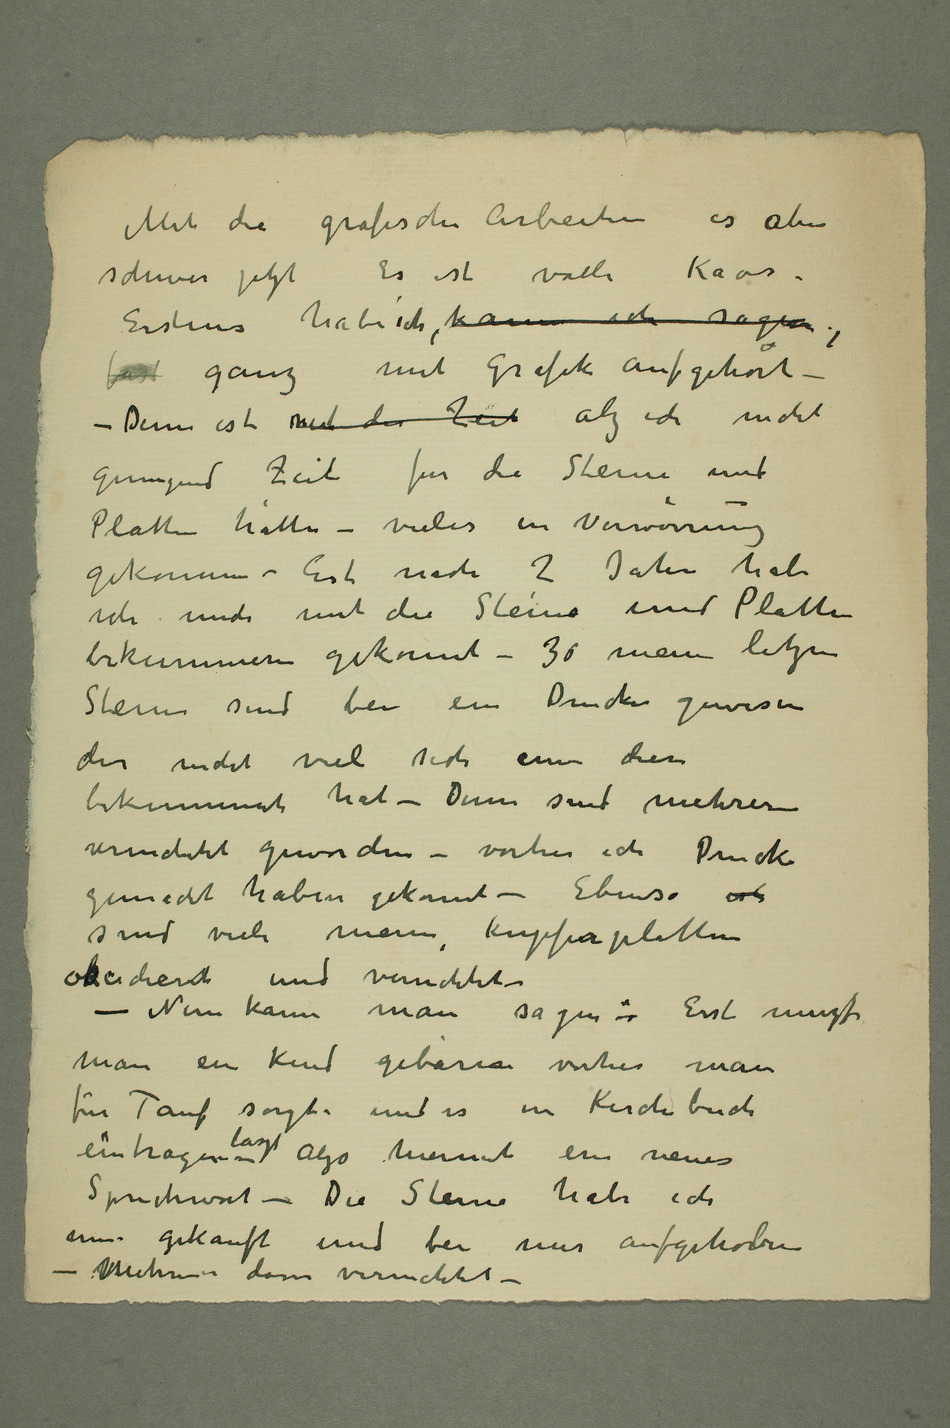 Mit die grafische Arbeiten es aber
schwer jetzt Es ist volle Kaos.
Erstens habe ich, kann ich sagen,
fast ganz mit Grafik aufgehört –
– Denn ist mit der Zeit alz ich nicht
genugend Zeit fur die Steine und
Platten hätte – vieles in Verwörrung
gekommen – Erst nach 2 Jahre habe
ich mich mit die Steine und Platten
bekummern gekonnt – 30 meine letzen
Steine sind bei ein Drucker gewesen
der nicht viel sich um dies
bekummert hat – Denn sind mehrere
vernichtet geworden – vorher ich Drucke
gemacht haben gekonnt – Ebenso ist
sind viele meine, Kupferplatten
oksidiert und vernichtet –
– Nun kann man sagen – Erst muzs
man ein Kind gebären vorher man
für Tauf sorgt und es in Kirchebuch
eintragen lazst Alzo hiermit ein neues
Sprichwort – Die Steine habe ich
nun gekauft und bei mir aufgehoben
– Mehrere davon vernichtet –